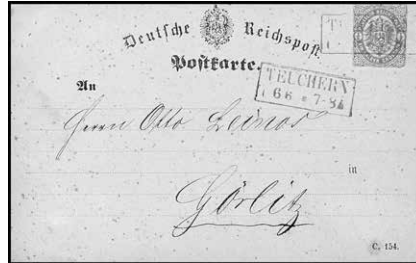 Deutsche Reichspost
Postkarte.
TEUCHERN
6 6 * 7-8
An
Herrn Otto
in
Görlitz
C. 154.